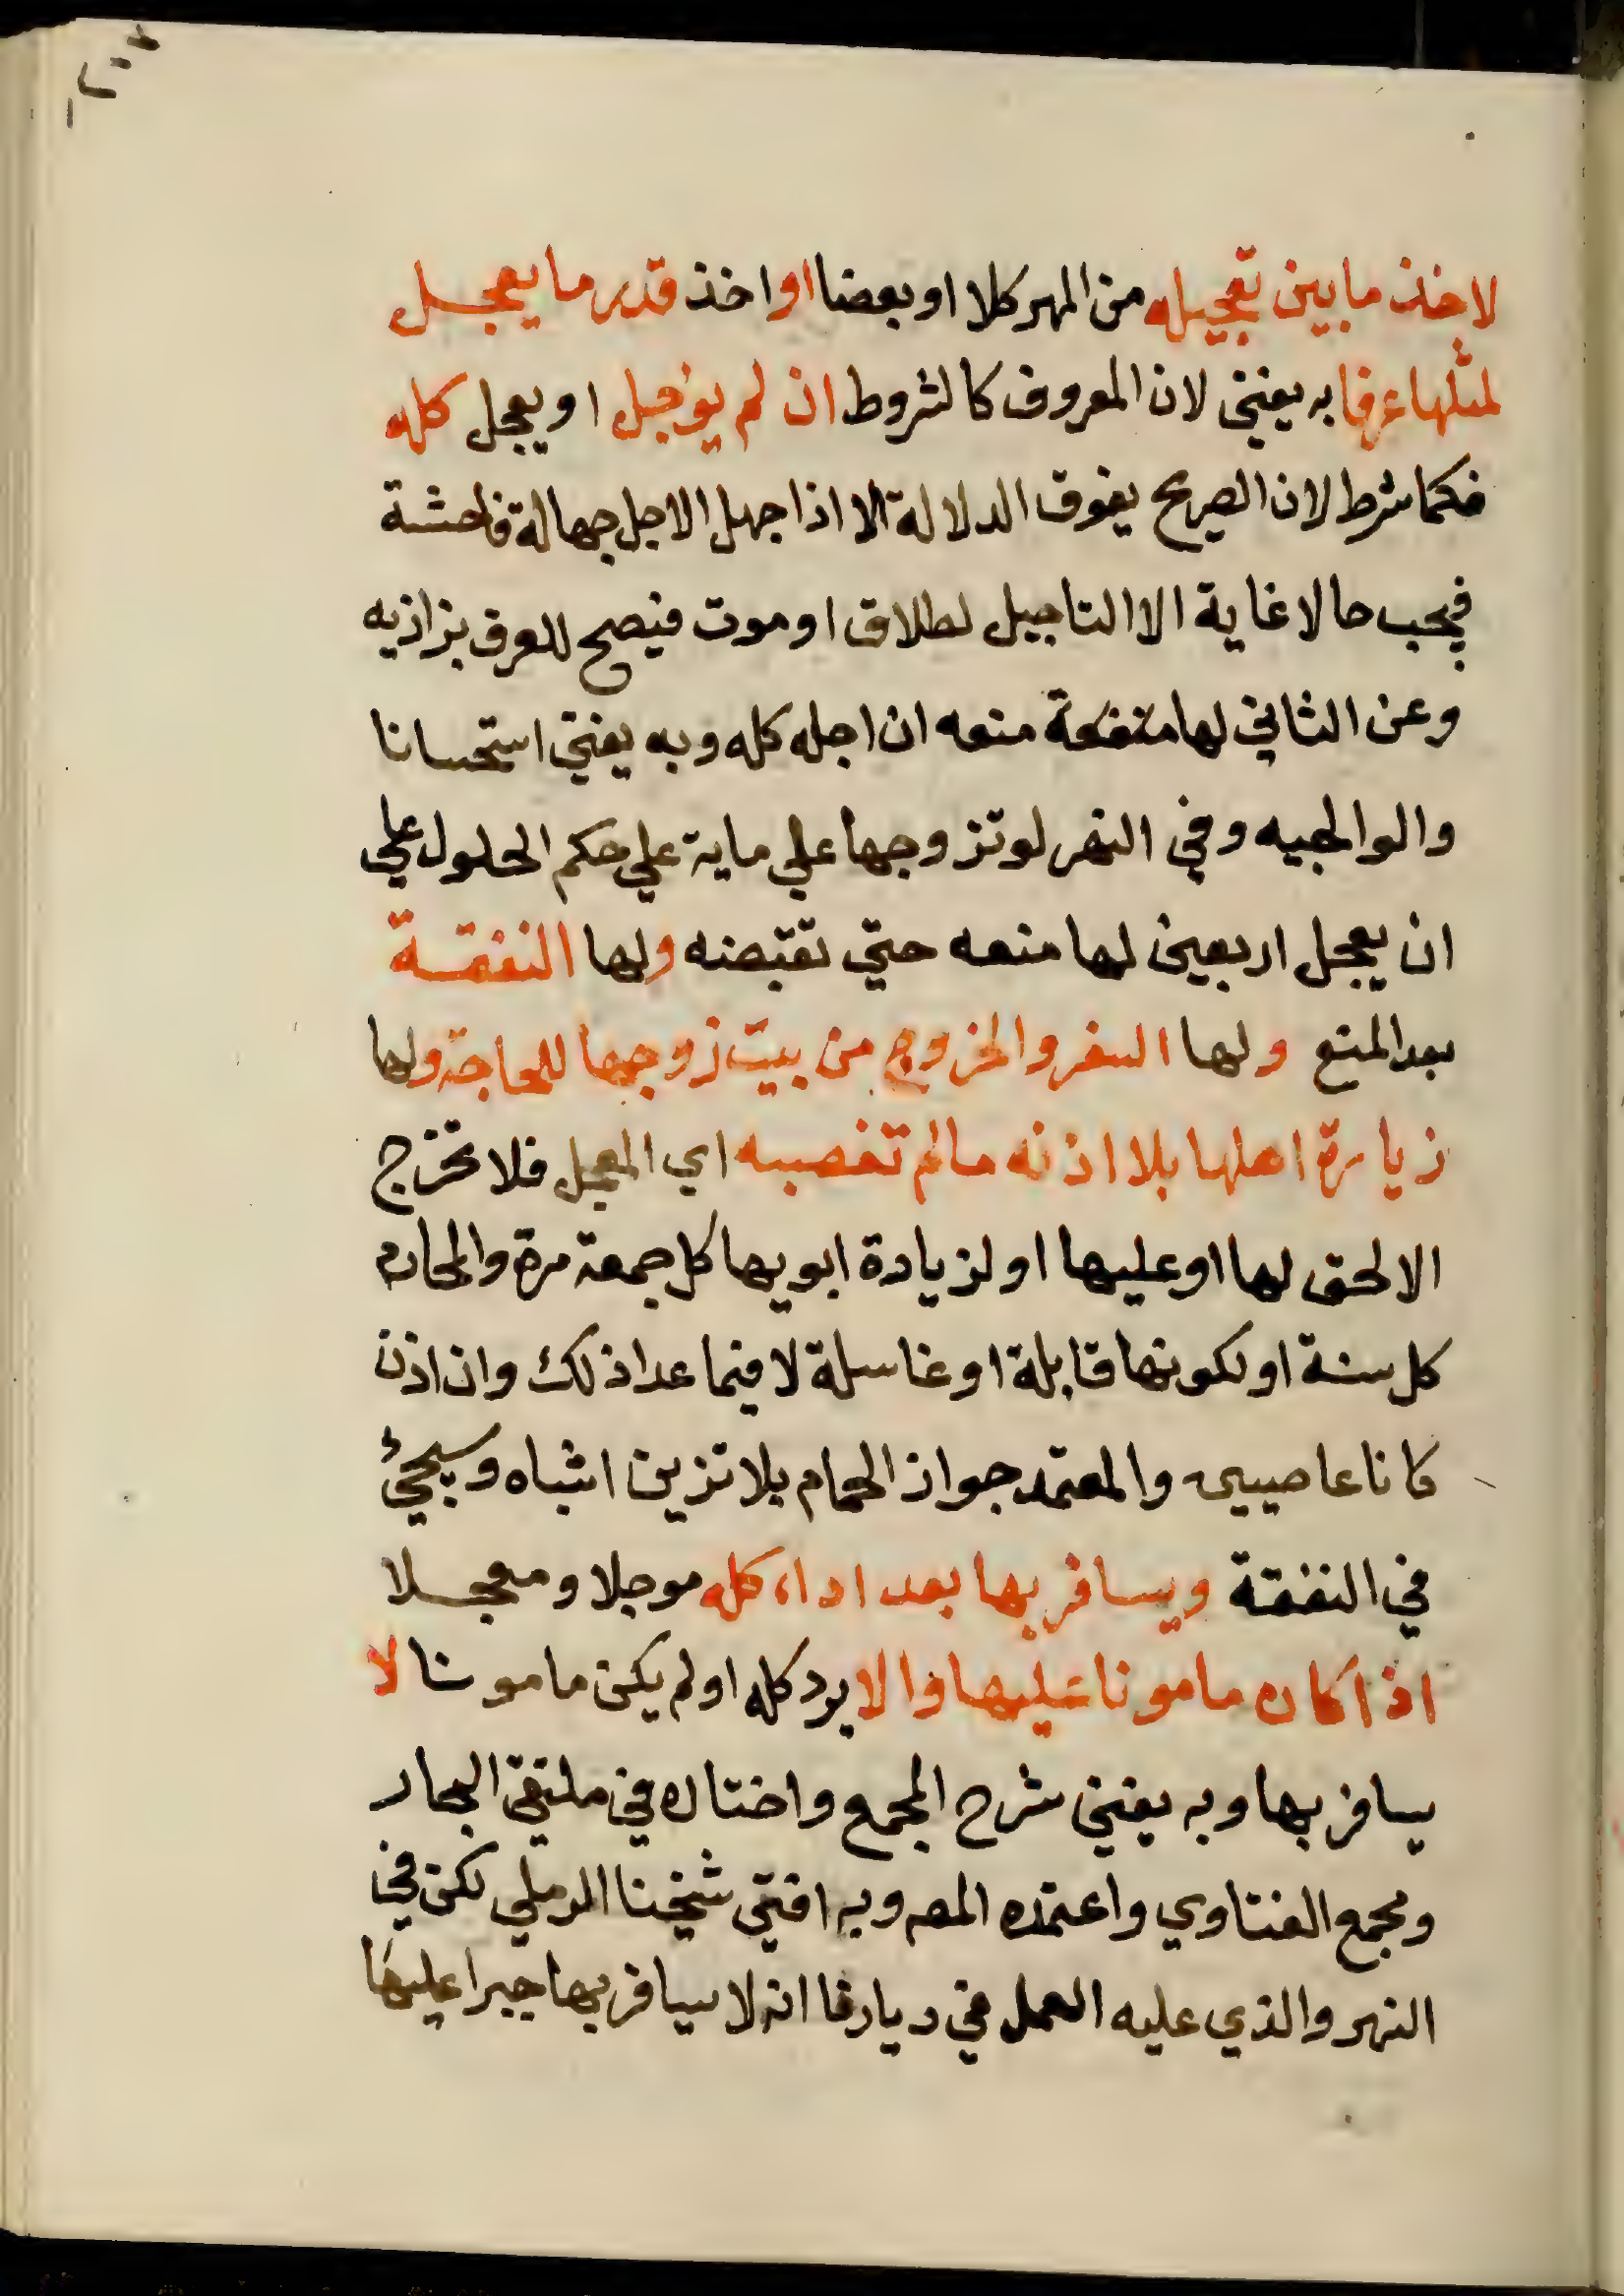 لاخذ ما بين تعجيله من المهر كلا او بعضا او اخذ قدر ما يعجل
لمثلها عرفا به يفتى لان المعروف كالمشروط ان لم يؤجل او يعجل كله
فكما شرط لان الصريح يفوق الدلالة الا اذا جهل الاجل جهالة فاحشة
فيجب حالا غاية الا التاجيل لطلاق او موت فيصح للعرف بزازيه
وعن الثاني لها منعه ان اجله كله وبه يفتي استحسانا
والوالجيه وفي النهر لو تزوجها علي ماية علي حكم الحلول علي
ان يعجل اربعين لها منعه حتي تقبضنه ولها النفقة
بعد المنع ولها السفر والخروج من بيت زوجها للحاجة ولها
زيارة اهلها بلا اذنه مالم تقصبه اي المعجل فلا تخرج
الا لحق لها او عليها او لزيادة ابويها كل جمعة مرة والمحارم
كل سنة او لكونها قابلة او غاسلة لا فيما عدا ذلك وان اذن
كانا عاصيين والمعتمد جواز الحمام بلا تزين اشباه وسيجئ
في النفقة ويسافر بها بعد اداء كله موجلا ومعجلا
اذا كان مامونا عليها والا يرد كله او لم يكن مامونا لا
يسافر بها وبه يفتي شرح المجمع واختاره في ملتقي البحار
ومجمع الفتاوي واعتمده المصـ وبه افتي شيخنا الرملي لكن في
النهر والذي عليه العمل في ديارنا انه لا يسافر بها جبرا عليها